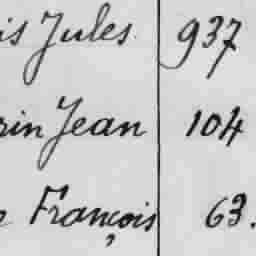 is Jules 937
rin Jean 104
François 63.